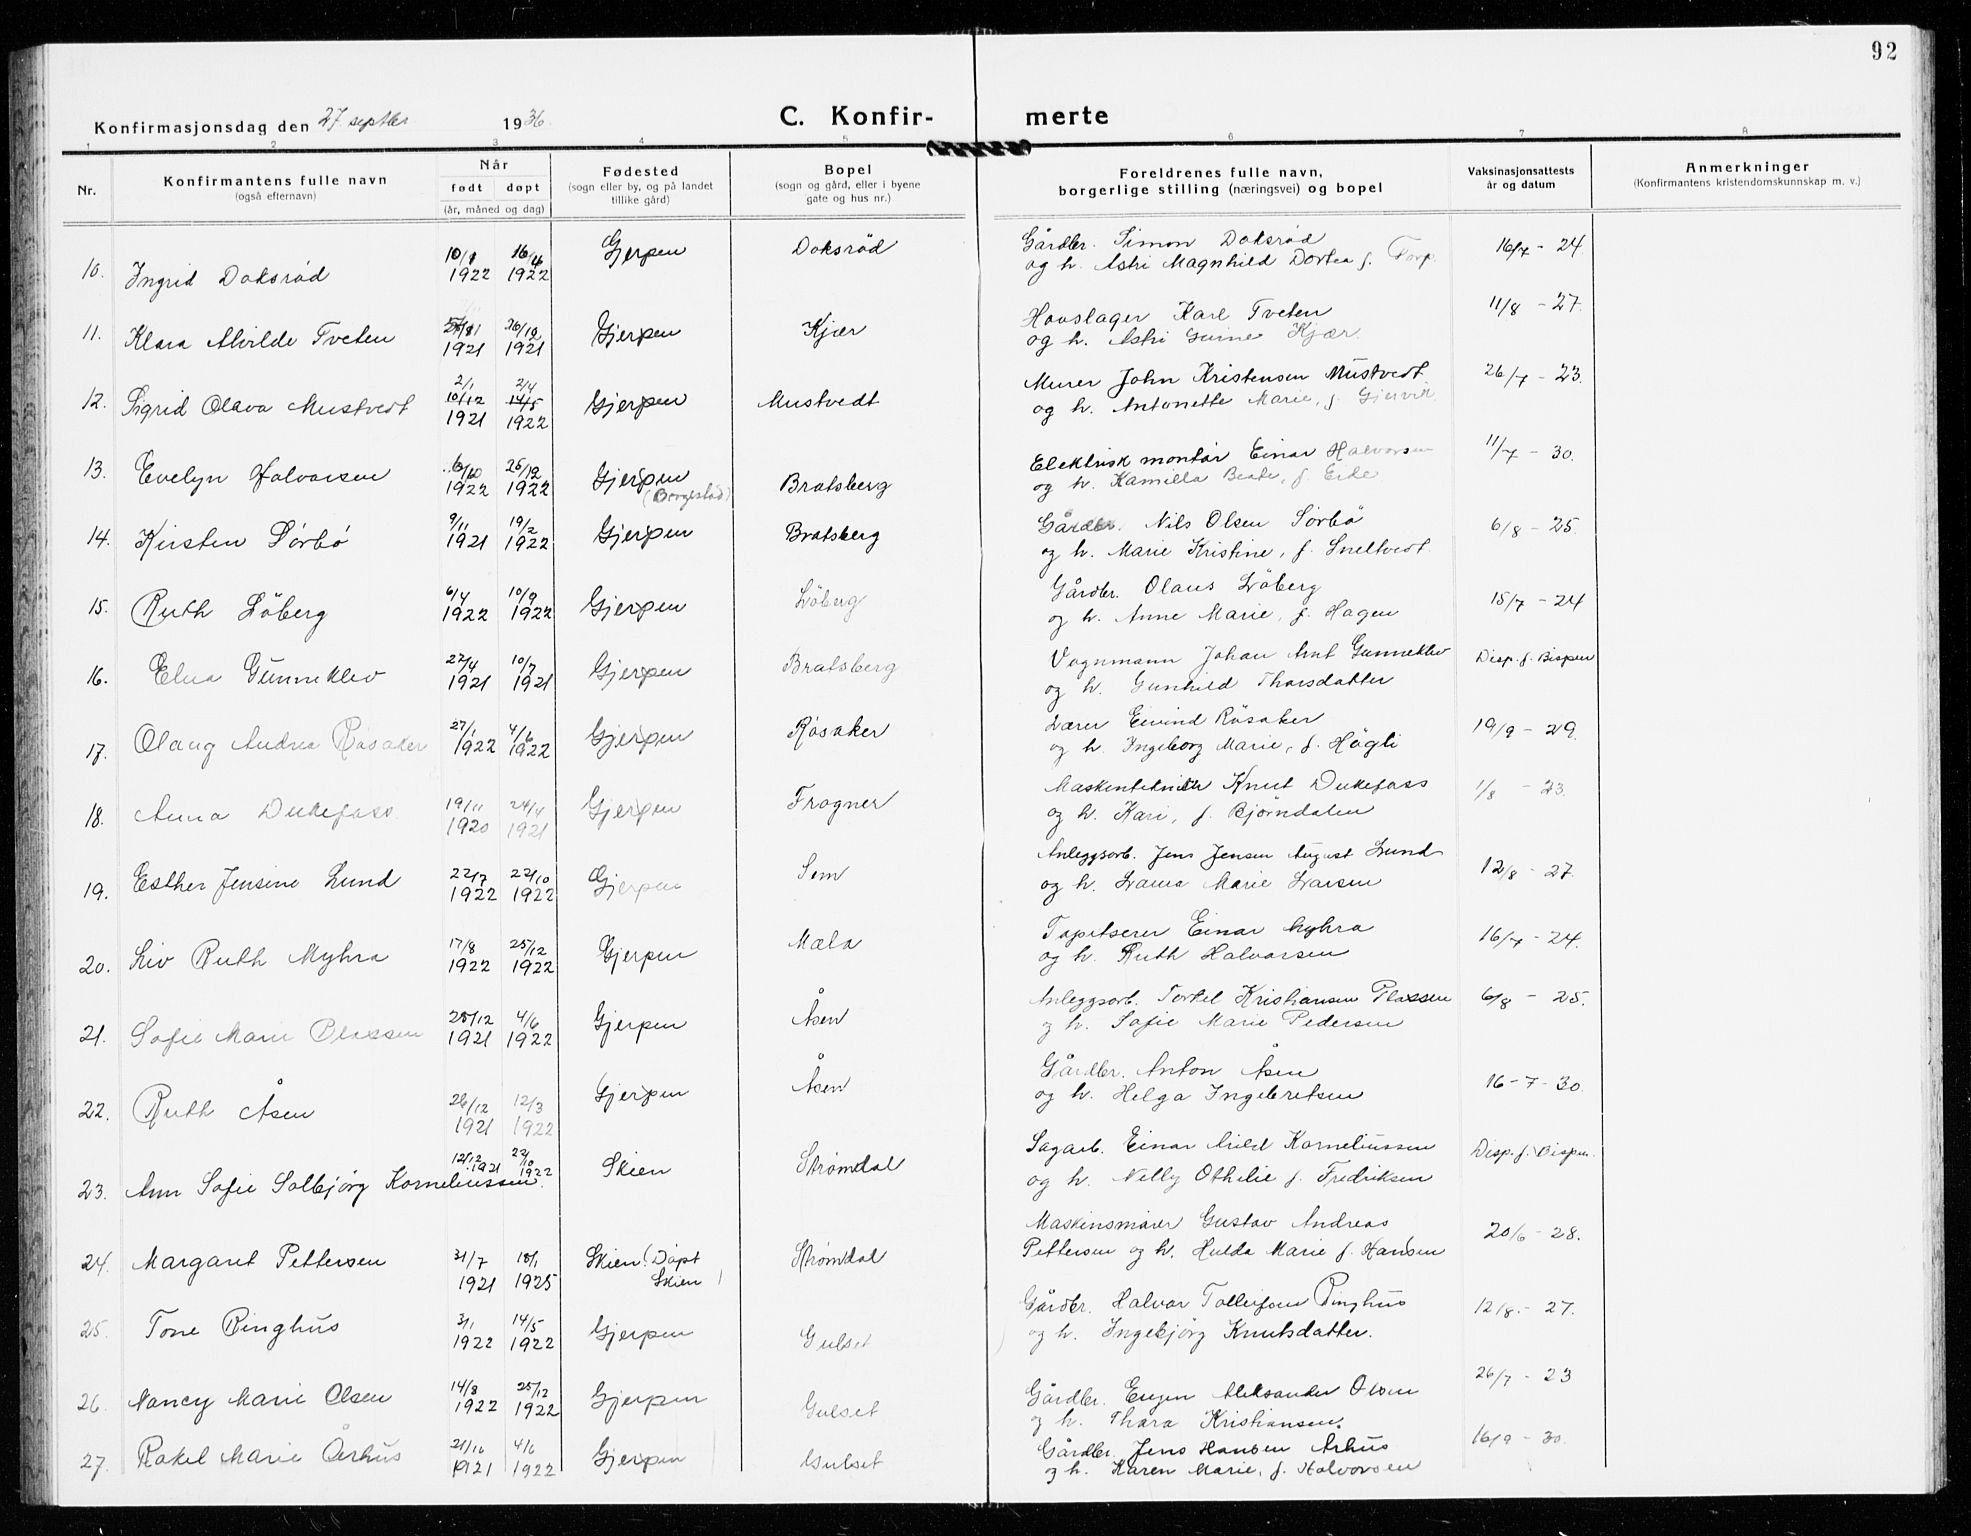 92
Konfirmasjonsdag den 27 septbr 1936
C. Konfirmerte
1 2 3 4 5 6 7 8
Nr.
Konfirmantens fulle navn
(også efternavn)
Når
født døpt
(år, måned og dag)
Fødested
(sogn eller by, og på landet
tillike gård)
Bopel
(sogn og gård, eller i byene
gate og hus nr.)
Foreldrenes fulle navn,
borgerlige stilling (næringsvei) og bopel
Vaksinasjonsattests
år og datum
Anmerkninger
(Konfirmantens kristendomskunnskap m. v.)
10. Ingrid Doksrød 10/1 1922 16/4 1922 Gjerpen Doksrød Gårdbr. Simon Doksrød 16/7 - 24
og h. Astri Magnhild Dortea f. Torp.
11. Klara Alvilde Tveten 1921 26/12 1921 Gjerpen Kjær Hovslager Karl Tveten 11/8 - 27.
og h. Astri Gurine Kjær.
12. Sigrid Olava Mustvedt 2/1 10/12 1921 2/4 14/5 1922 Gjerpen Mustvedt Murer John Kristensen Mustvedt 26/7 - 23.
og h. Antonette Marie, f. Gjervik.
13. Evelyn Halvorsen 6/10 1922 25/12 1922 Gjerpen (Borgestad) Bratsberg Elektrisk montør Einar Halvorsen 11/7 - 30.
og h. Kamilla Beate, f. Eike
14. Kirsten Sörbö 9/11 1921 19/2 1922 Gjerpen Bratsberg Gårdbr. Nils Olsen Sörbö 6/8 - 25.
og h. Marie Kristine, f. Sneltvedt.
15. Ruth Löberg 6/4 1922 10/9 1922 Gjerpen Löberg Gårdbr. Olaus Löberg 15/7 - 24
og h. Anne Marie, f. Hagen
16. Elna Gunneklev 22/4 1921 10/7 1921 Gjerpen Bratsberg Vognmann Johan Ant Gunneklev Disp. f. Bispen
og h. Gunhild Thorsdatter
17. Olaug Andrea Røsaker 27/1 1922 4/6 1922 Gjerpen Røsaker Lærer Eivind Røsaker 19/9 - 29.
og h. Ingeborg Marie, f. Högli
18. Anna Dukefoss 19/11 1920 24/4 1921 Gjerpen Frogner Knut Dukefoss 1/8 - 23.
og h. Kari, f. Bjørndalen
19. Esther Jensine Lund 22/7 1922 22/10 1922 Gjerpen Sem Anleggsarb. Jens Jensen August Lund 12/8 - 27.
og h. Laura Marie Larsen
20. Liv Ruth Myhra 17/8 1922 25/12 1922 Gjerpen Mæla Tapetserer Einar Myhra 16/7 - 24.
og h. Ruth Halvorsen
21. Sofie Marie Plassen 25/12 1921 4/6 1922 Gjerpen Åsen Anleggsarb. Torkel Kristiansen Plassen 6/8 - 25.
og h. Sofie Marie Pedersen
22. Ruth Åsen 26/12 1921 12/3 1922 Gjerpen Åsen Gårdbr. Anton Åsen 16-7-30.
og h. Helga Ingebretsen
23. Ann Sofie Solbjörg Korneliussen 12/12 1921 22/10 1922 Skien Strømdal Sagarb. Einar Arild Korneliussen Disp. f. Bispen.
og h. Nelly Othilie f. Fredriksen
24. Margaret Pettersen 31/7 1921 18/1 1925 Skien (Døpt Skien) Strømdal Maskinsmører Gustav Andreas 20/6 - 28.
Pettersen og h. Hulda Marie f. Hansen
25. Tone Ringhus 3/1 1922 14/5 1922 Gjerpen Gulset Gårdbr. Halvor Tollefsen Ringhus 12/8. - 27.
og h. Ingebjörg Knutsdatter.
26. Nancy Marie Olsen 14/8 1922 25/12 1922 Gjerpen Gulset Gårdbr. Eugen Aleksander Olsen 26/7 - 23
og h. Thora Kristiansen.
27. Rakel Marie Århus 21/10 1921 4/6 1922 Gjerpen Gulset Gårdbr. Jens Hansen Århus 16/9 - 30.
og h. Karen Marie, f. Halvorsen